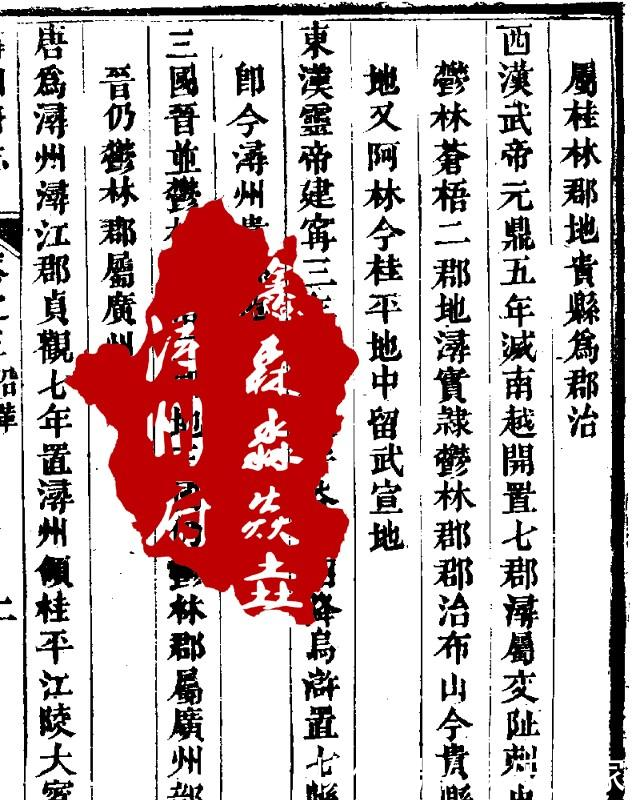 屬桂林郡地貴縣為郡治
西漢武帝元鼎五年滅南越開置七郡潯屬交阯刺史
鬱林蒼梧二郡地潯實隸鬱林郡郡治布山今貴縣
地又阿林今桂平地中留武宣地
東漢靈帝建寗三年
降烏滸置七縣
即今潯州貴
三國晉並鬱
鬱林郡屬廣州部
晉仍鬱林郡屬廣州
唐為潯州潯江郡貞觀七年置潯州領桂平江陵大賓
鑫森淼焱垚
潯州府